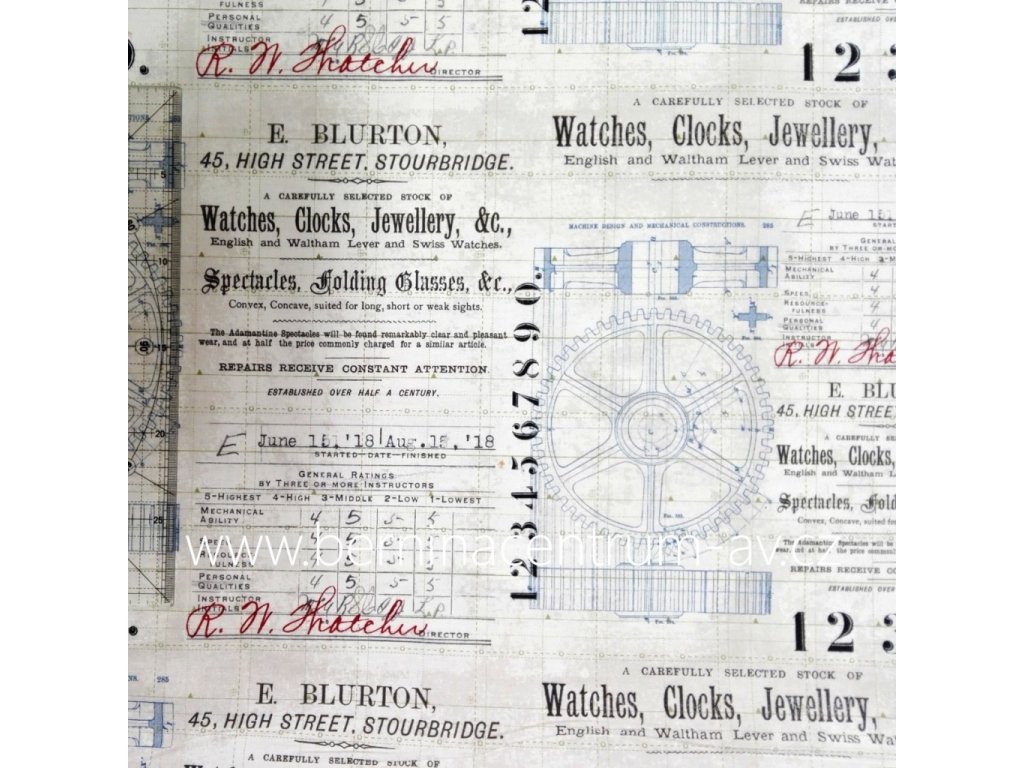 FULNESS
PERSONAL QUALITIES 4 5 5 5
INSTRUCTOR
R. W. Thatcher DIRECTOR
REPAIRS RECEIVE
ESTABLISHED OVER
1 2 3
E. BLURTON,
45, HIGH STREET, STOURBRIDGE.
A CAREFULLY SELECTED STOCK OF
Watches, Clocks, Jewellery, &c.,
English and Waltham Lever and Swiss Watches.
Spectacles, Folding Glasses, &c.,
Convex, Concave, suited for long, short or weak sights.
The Adamantine Spectacles will be found remarkably clear and pleasant
wear, and at half the price commonly charged for a similar article.
REPAIRS RECEIVE CONSTANT ATTENTION.
ESTABLISHED OVER HALF A CENTURY.
E June 15, '18 Aug. 15, '18
STARTED—DATE—FINISHED
GENERAL RATINGS
BY THREE OR MORE INSTRUCTORS
5-HIGHEST 4-HIGH 3-MIDDLE 2-LOW 1-LOWEST
MECHANICAL ABILITY 4 5 5 5
SPEED
RESOURCEFULNESS
PERSONAL QUALITIES 4 5 5 5
INSTRUCTOR
R. W. Thatcher DIRECTOR
A CAREFULLY SELECTED STOCK OF
Watches, Clocks, Jewellery,
English and Waltham Lever and Swiss Wat
MACHINE DESIGN AND MECHANICAL CONSTRUCTIONS. 285
1 2 3 4 5 6 7 8 9 0.
E June 15,
START
GENERAL
BY THREE OR MO
5-HIGHEST 4-HIGH 3-M
MECHANICAL
ABILITY 4
SPEED 4
RESOURCE-
FULNESS 4
PERSONAL
QUALITIES 4
R. W. Thatc
E. BLU
45, HIGH STREE
A CAREFULLY SE
Watches, Clocks,
English and Waltham L
Spectacles, Fold
Convex, Concave, suited fo
The Adamantine Spectacles will be
wear, and at half the price
REPAIRS RECEIVE CO
ESTABLISHED OVE
1 2 3
www.berninacentrum-av.
285
E. BLURTON,
45, HIGH STREET, STOURBRIDGE.
A CAREFULLY SELECTED STOCK OF
A CAREFULLY SELECTED STOCK OF
Watches, Clocks, Jewellery,
English and Waltham Lever and Swiss Wa